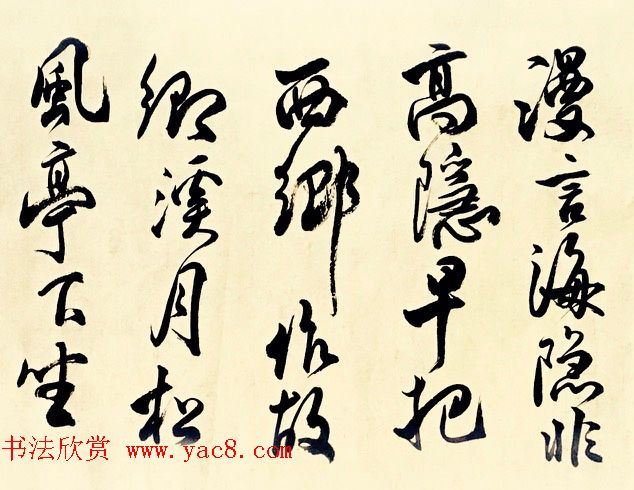 漫言海隐非
高隱早把
西鄉作故
鄉溪月松
風亭下坐
书法欣赏 www.yac8.com